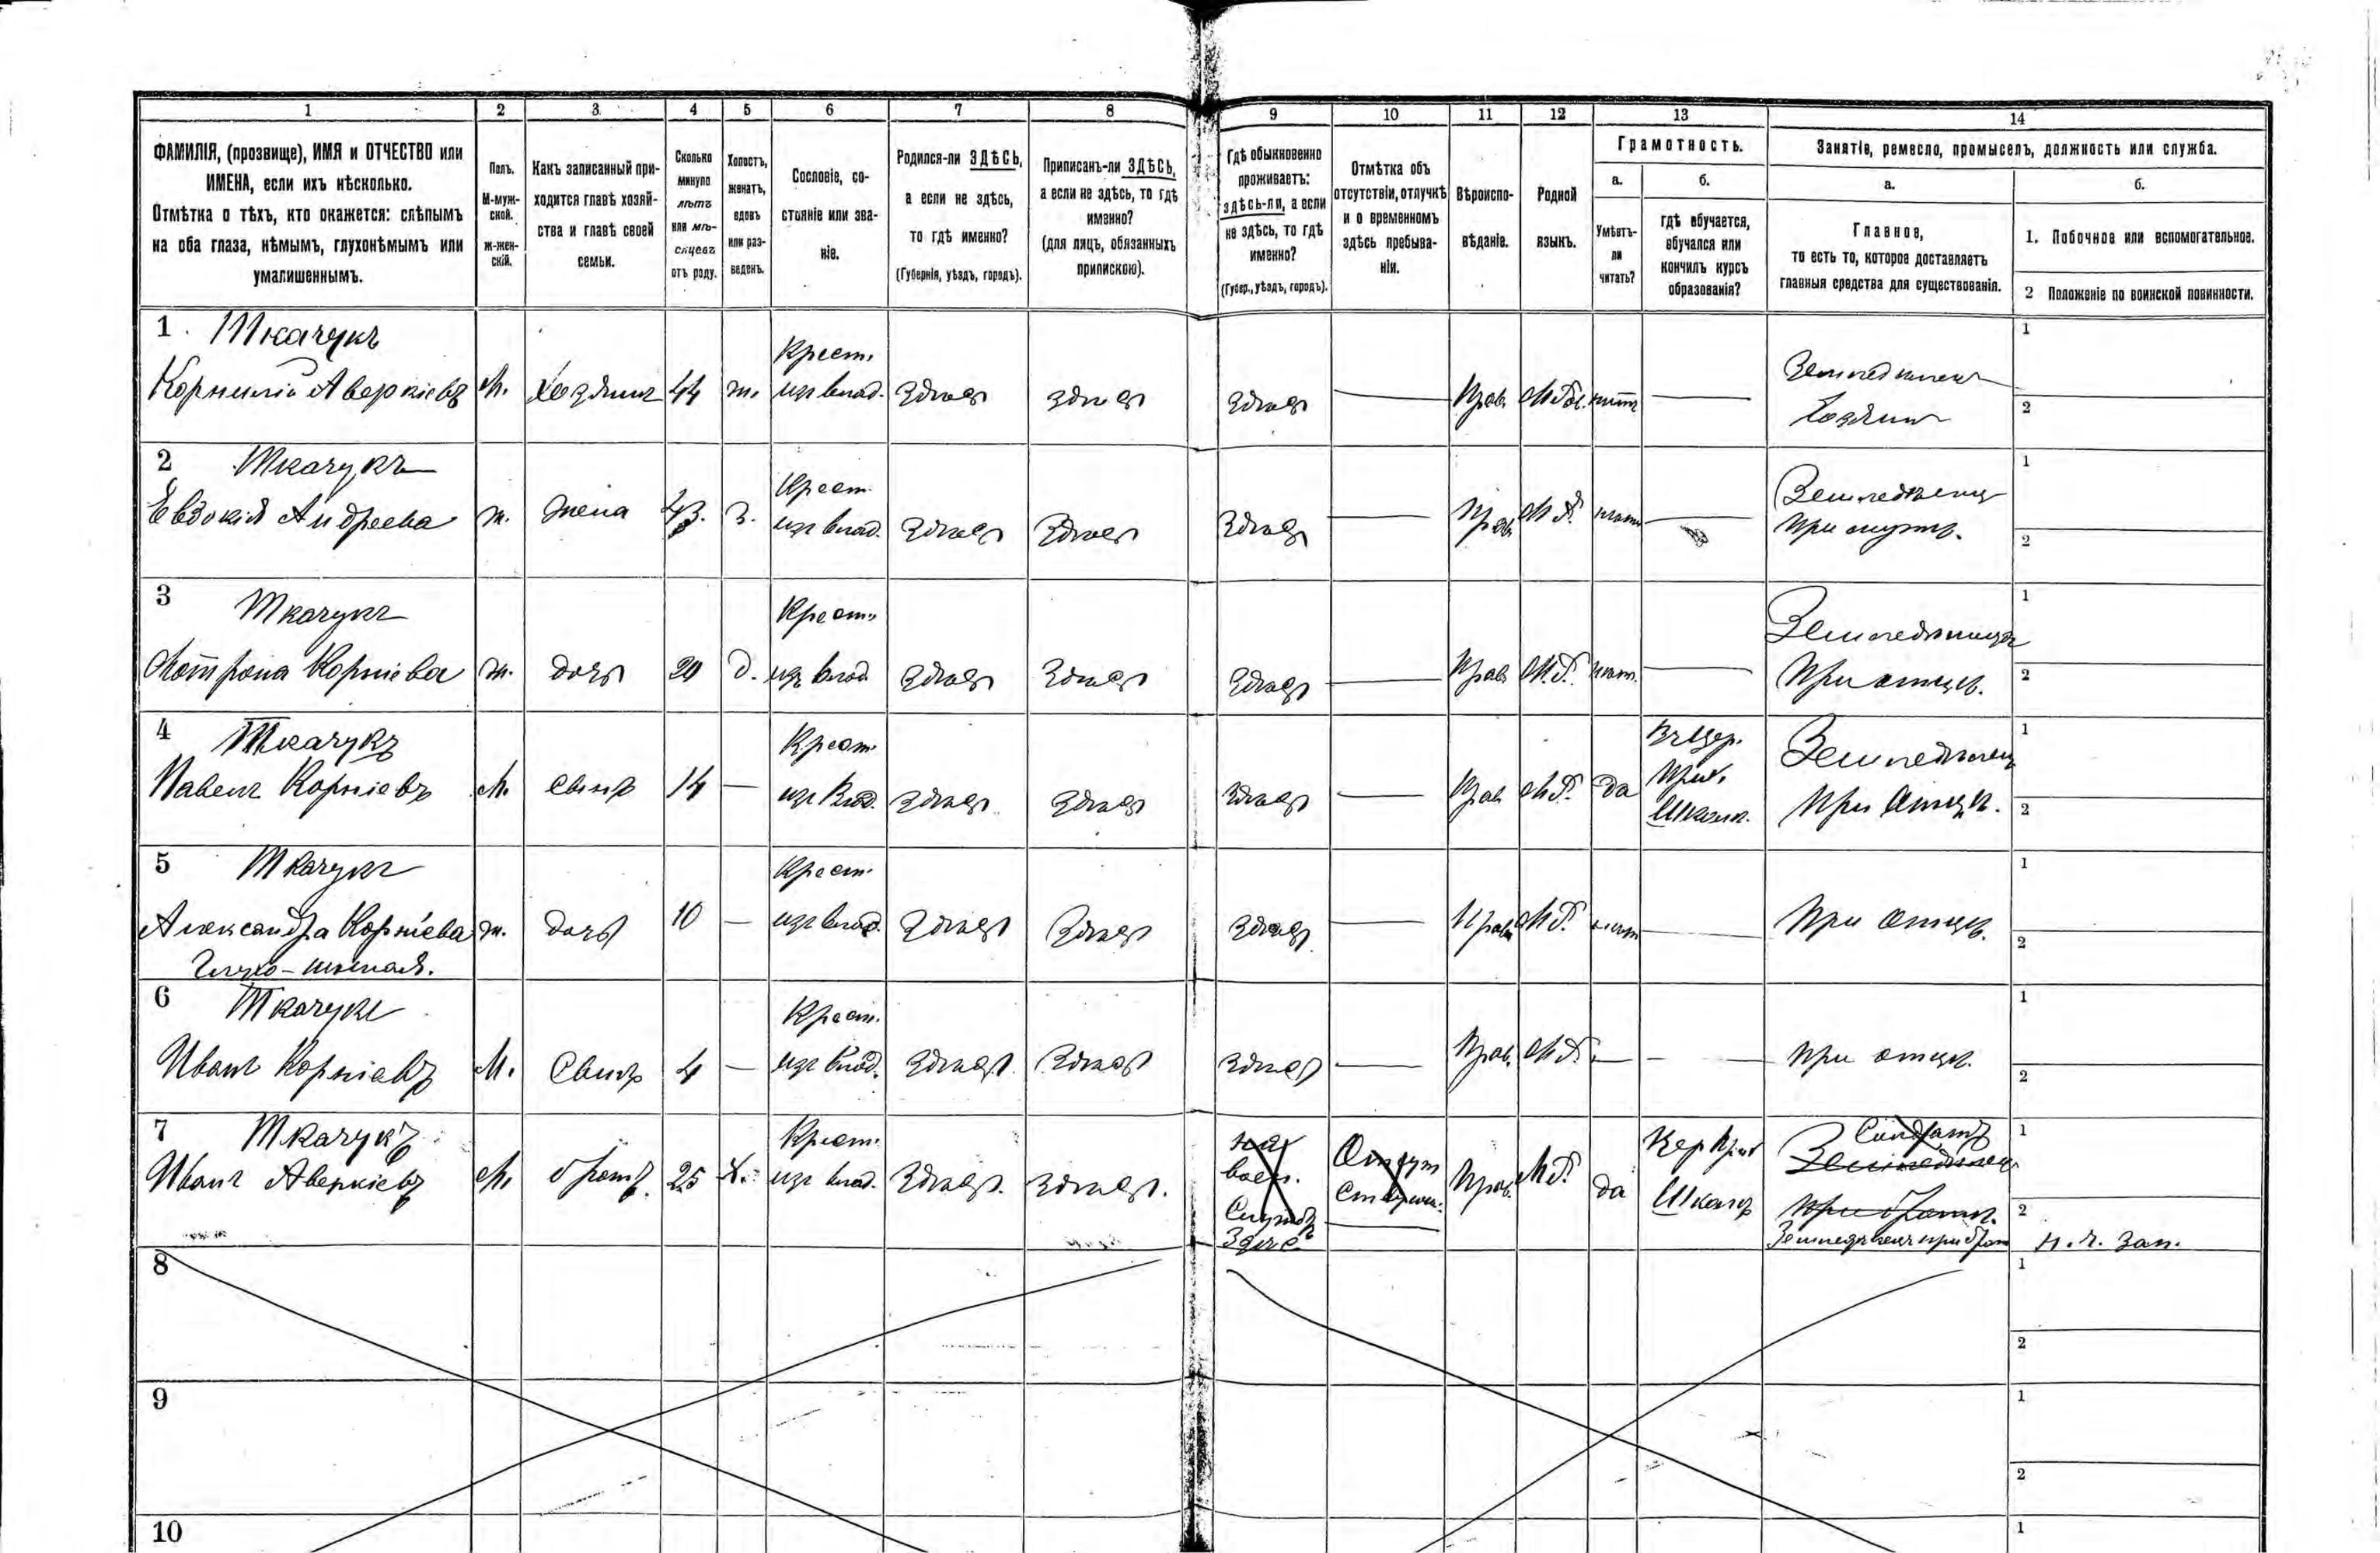 1 2 3 4 5 6 7 8 9 10 11 12 13 14
ФАМИЛІЯ, (прозвище), ИМЯ и ОТЧЕСТВО или
ИМЕНА, если ихъ нѣсколько.
Отмѣтка о тѣхъ, кто окажется: слѣпымъ
на оба глаза, нѣмымъ, глухонѣмымъ или
умалишеннымъ.
Полъ.
М-муж-
ской.
ж-жен-
скій.
Какъ записанный при-
ходится главѣ хозяй-
ства и главѣ своей
семьи.
Сколько
минуло
лѣтъ
или мѣ-
сяцевъ
отъ роду.
Холостъ,
женатъ,
вдовъ
или раз-
веденъ.
Сословіе, со-
стояніе или зва-
ніе.
Родился-ли ЗДѢСЬ,
а если не здѣсь,
то гдѣ именно?
(Губернія, уѣздъ, городъ).
Приписанъ-ли ЗДѢСЬ,
а если не здѣсь, то гдѣ
именно?
(для лицъ, обязанныхъ
припискою).
Гдѣ обыкновенно
проживаетъ:
здѣсь-ли, а если
не здѣсь, то гдѣ
именно?
(Губер., уѣздъ, городъ).
Отмѣтка объ
отсутствіи, отлучкѣ
и о временномъ
здѣсь пребыва-
ніи.
Вѣроиспо-
вѣданіе.
Родной
языкъ.
Грамотность.
а.
Умѣетъ-
ли
читать?
б.
гдѣ обучается,
обучался или
кончилъ курсъ
образованія?
Занятіе, ремесло, промыселъ, должность или служба.
а.
Главное,
то есть то, которое доставляетъ
главныя средства для существованія.
б.
1. Побочное или вспомогательное.
2 Положеніе по воинской повинности.
1 Ткачукъ Крест. 1
Корнилій Аверкіевъ М. Хозяинъ 44 ж. изъ влад. Здѣсь здѣсь Здѣсь Прав. нѣтъ Земледѣлецъ
Хозяинъ 2
2 Ткачукъ Крест. 1
Евдокія Андреева ж. жена 43. З. изъ влад. Здѣсь Здѣсь Здѣсь Прав. М.Р. нѣтъ Земледѣлецъ
при мужѣ. 2
3 Ткачукъ Крест. 1
Мотрона Корніева ж. дочь 20 д. изъ влад. Здѣсь Здѣсь Здѣсь Прав. М.Р. нѣт. Земледѣлица
При отцѣ. 2
4 Ткачукъ Крест. Въ Цер. Земледѣлецъ 1
Павелъ Корніевъ М. сынъ 14 изъ Влад. Здѣсь Здѣсь Здѣсь Прав М.Р. да Прих. При Отцѣ.
Школѣ. 2
5 Ткачукъ Крест. 1
Александра Корніева ж. дочь 10 изъ влад. Здѣсь Здѣсь Здѣсь Прав М.Р. нѣт При отцѣ.
Глухо-нѣмая. 2
6 Ткачукъ Крест. 1
Иванъ Корніевъ М. Сынъ 4 изъ влад. Здѣсь Здѣсь Здѣсь Прав. М.Р. При отцѣ. 2
7 Ткачукъ Крест. На Цер Прих Солдатъ 1
Иванъ Аверкіевъ М. братъ. 25 Х. изъ влад. Здѣсь. Здѣсь. воен. Прав. М.Р. да Школѣ Земледѣлецъ
Службѣ при братѣ. 2
Здѣсь Земледѣлецъ при брат н. ч. зап.
8 1
2
9 1
2
10 1